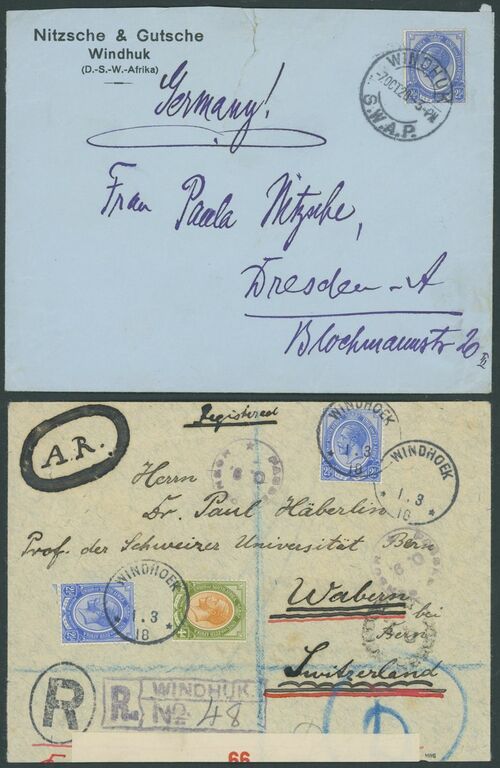 Nitzsche & Gutsche
Windhuk
(D.-S.-W.-Afrika)
WINDHUK
7 OCT 20 3-PM
S.W.A.P.
Germany!
Frau Paula Nitzsche,
Dresden-A
Blochmannstr 20
Registered
A.R.
WINDHOEK
1.3
18
WINDHOEK
1.3
18
Herrn
Dr. Paul Häberlin
Prof. der Schweizer Universität Bern
Wabern
bei
Bern
Switzerland
WINDHOEK
1.3
18
R
R. WINDHUK
No 48
99